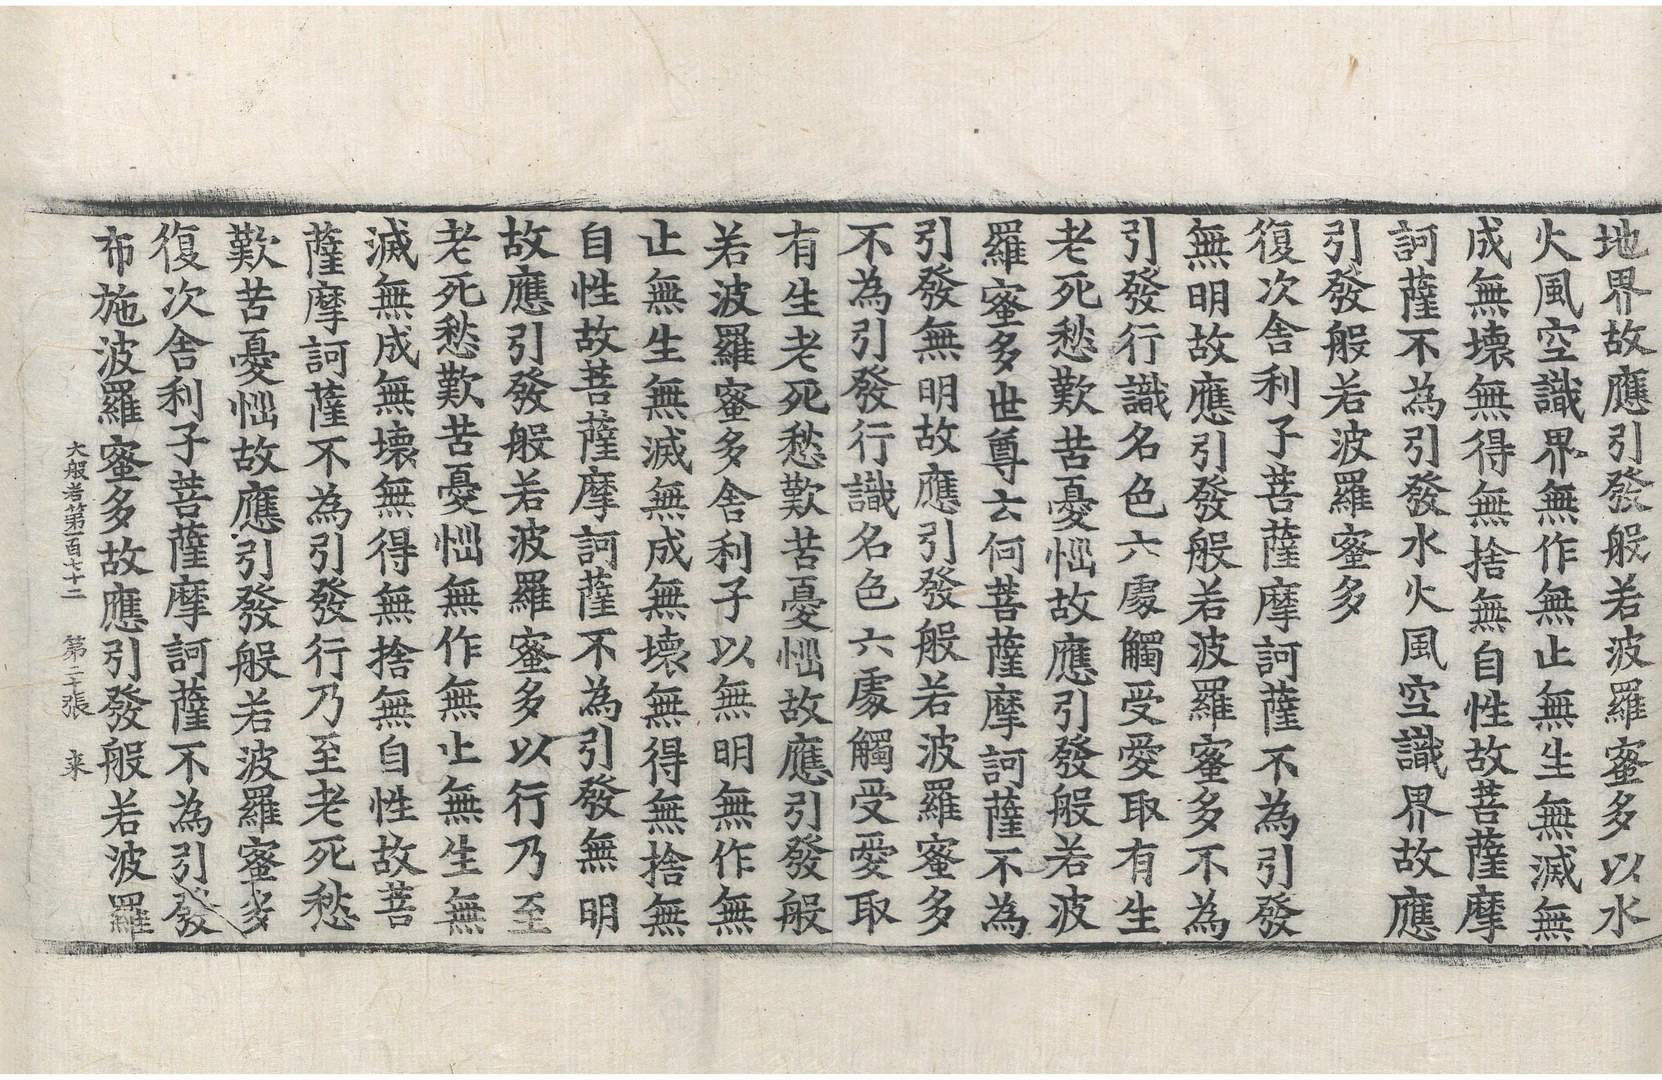 地界故應引發般若波羅蜜多以水
火風空識界無作無止無生無滅無
成無壞無得無捨無自性故菩薩摩
訶薩不為引發水火風空識界故應
引發般若波羅蜜多
復次舍利子菩薩摩訶薩不為引發
無明故應引發般若波羅蜜多不為
引發行識名色六處觸受愛取有生
老死愁歎苦憂惱故應引發般若波
羅蜜多世尊云何菩薩摩訶薩不為
引發無明故應引發般若波羅蜜多
不為引發行識名色六處觸受愛取
有生老死愁歎苦憂惱故應引發般
若波羅蜜多舍利子以無明無作無
止無生無滅無成無壞無得無捨無
自性故菩薩摩訶薩不為引發無明
故應引發般若波羅蜜多以行乃至
老死愁歎苦憂惱無作無止無生無
滅無成無壞無得無捨無自性故菩
薩摩訶薩不為引發行乃至老死愁
歎苦憂惱故應引發般若波羅蜜多
復次舍利子菩薩摩訶薩不為引發
布施波羅蜜多故應引發般若波羅
大般若第一百七十二 第二十張 來